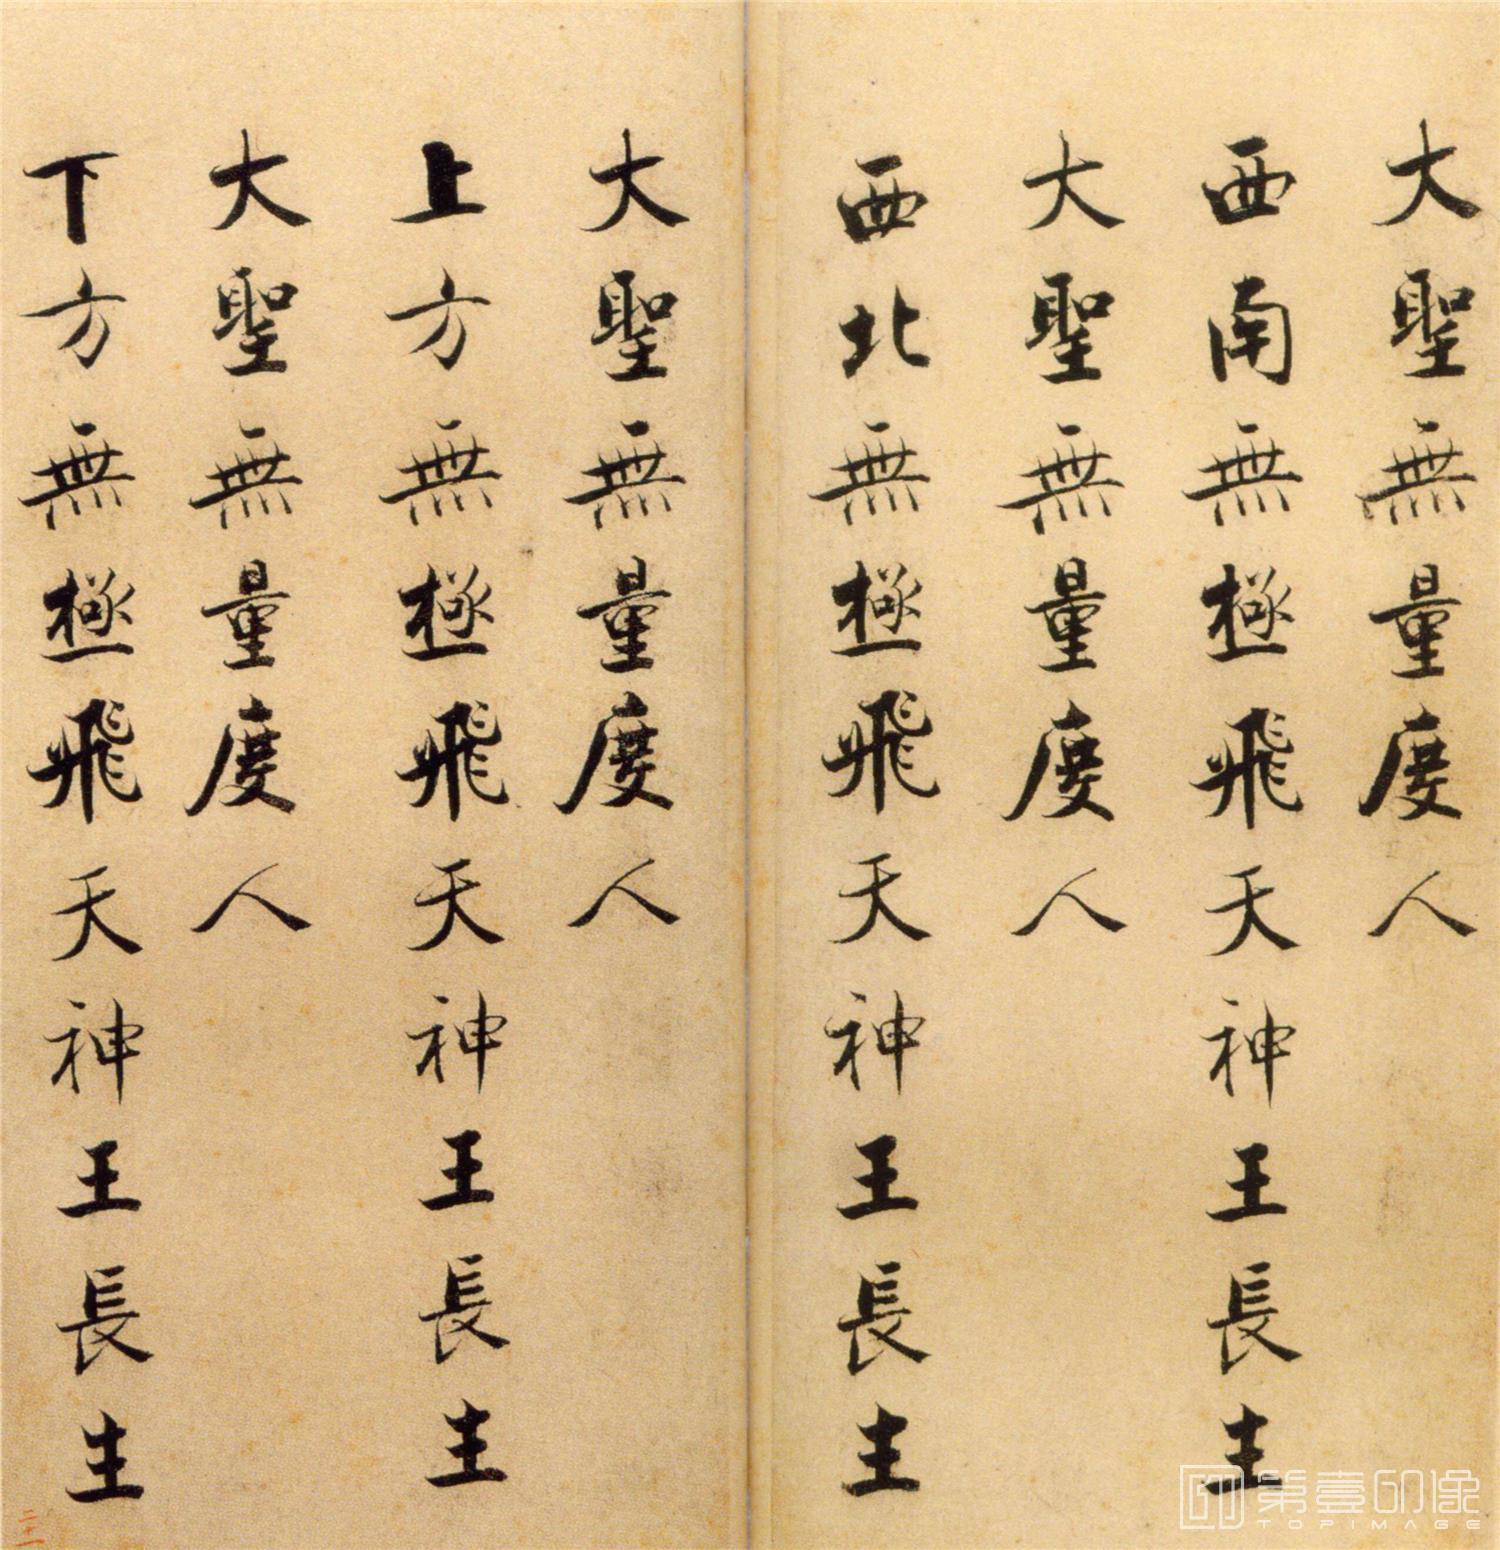 大聖無量度人
西南無極飛天神王長生
大聖無量度人
西北無極飛天神王長生
大聖無量度人
上方無極飛天神王長生
大聖無量度人
下方無極飛天神王長生
二十一
第壹印像
TOPIMAGE